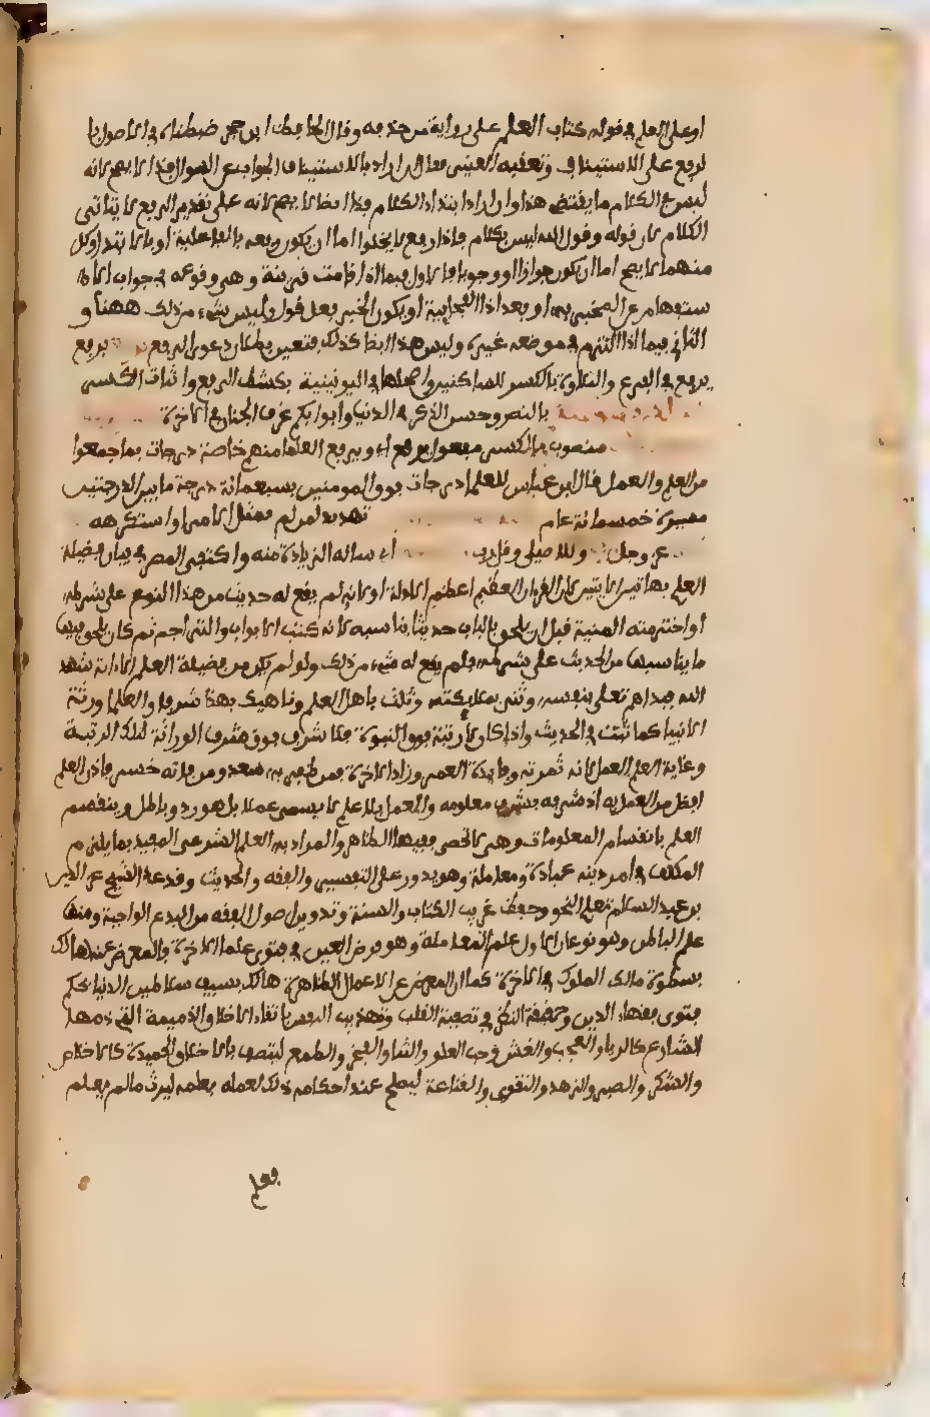 او على العلم في قوله كتاب العلم على رواية من حذفه وقال الحافظ ابن حجر ضبطناه في الاصول با
لرفع على الاستيناف وتعقبه العيني فقال ان اراد بالاستيناف الجواب عن السوال فذا لا يصح لانه
ليس في الكلام ما يقتضي هذا وان اراد ابتداء الكلام فذا ايضا لا يصح لانه على تقدير الرفع لا يتاتى
الكلام لان قوله وقول الله ليس بكلام فاذا رفع لا يخلوا اما ان يكون رفعه بالفاعلية او بالابتداء وكل
منهما لا يصح اما ان يكون جوازا او وجوبا فالاول فيما اذا قامت قرينة وهي وقوعه في جواب الا
ستفهام عن المخبر به او بعد اذا الفجايية او يكون الخبر فعل قول وليس شيء من ذلك ههنا و
الثاني فيما اذا التزم في موضعه غيره وليس هذا ايضا كذلك فتعين بطلان دعوى الرفع يرفع
يرفع في الفرع والتلاوة بالكسر للساكنين واصلها في اليونينية بكشط الرفع واثبات الكسر
بالنصر وحسن الذكر في الدنيا وايوايكم غرف الجنان في الاخرة
منصوب بالكسر مفعول يرفع اي ويرفع العلما منهم خاصة درجات بما جمعوا
من العلم والعمل قال ابن عباس للعلما درجات فوق المومنين بسبعمائة درجة ما بين الدرجتين
مسيرة خمسمائة عام تهديد لمن لم يمتثل الامر او استكرهه
عز وجل وللاصيلي وقل رب اي ساله الزيادة منه واكتفى المص في بيان فضيلة
العلم بهاتين الايتين لان القران العظيم اعظم الادلة او لانه لم يقع له حديث من هذا النوع على شرطه
او اخترمته المنية قبل ان يلحق بالباب حديثا يناسبه لانه كتب الابواب والتراجم ثم كان يلحق فيها
ما يناسبها من الحديث على شرطه فلم يقع له شيء من ذلك ولو لم يكن من فضيلة العلم الا اية شهد
الله فبدا الله تعلى بنفسه وثنى بملايكته وثلث باهل العلم وناهيك بهذا شرفا والعلما ورثة
الانبيا كما ثبت في الحديث واذا كان لا رتبة فوق النبوة فلا شرف فوق شرف الوراثة لتلك الرتبة
وغاية العلم العمل لانه ثمرته وفايدة العمر وزاد الاخرة فمن ظفر به سعد ومن فاته خسر فاذن العلم
افضل من العمل به اذ شرفه بشرف معلومه والعمل بلا علم لا يسمى عملا بل هو رد وباطل وينقسم
العلم بانقسام المعلومات وهي لا تحصى فمنها الظاهر والمراد به العلم الشرعي المفيد بما يلزم
المكلف في امر دينه عبادة ومعاملة وهو يدور على التفسير والفقه والحديث وقد عد الشيخ عز الدين
بن عبد السلام تعلم النحو وحفظ غريب الكتاب والسنة وتدوين اصول الفقه من البدع الواجبة ومنها
علم الباطن وهو نوعان الاول علم المعاملة وهو فرض العين في فتوى علما الاخرة فالمعرض عنه هالك
بسطوة مالك الملوك في الاخرة كما ان المعرض عن الاعمال الظاهرة هالك بسيف سلاطين الدنيا بحكم
فتوى فقهاء الدين وحقيقة النظر في تصفية القلب وتهذيب النفس باتقاء الاخلاق الذميمة التي ذمها
الشارع كالريا والعجب والغش وحب العلو والثنا والفخر والطمع ليتصف بالاخلاق الحميدة كالاخلاص
والشكر والصبر والزهد والتقوى والقناعة ليصلح عند احكامه ذلك لعمله بعلمه ليرث ما لم يعلم
فعلم